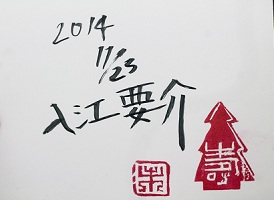 2014
11/23
入江要介
寿